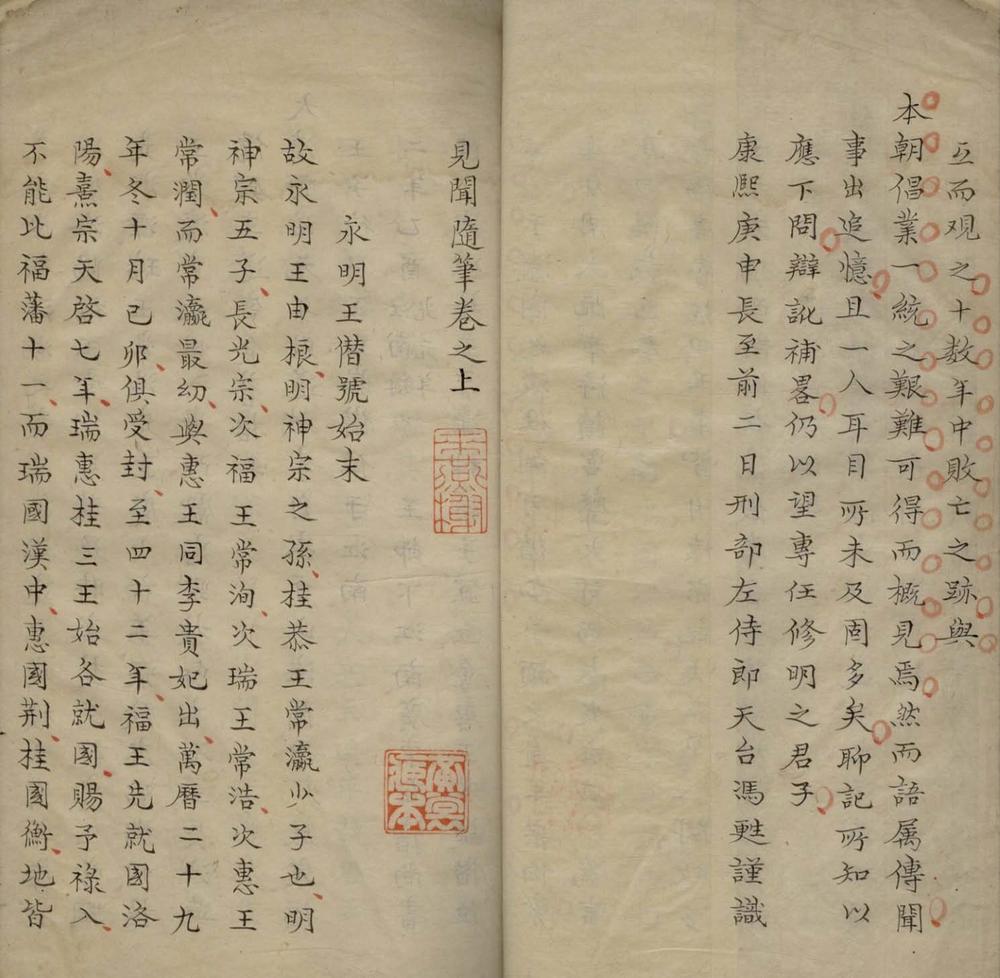 互而观之十数年中败亡之跡與
本朝倡業一統之艱難可得而概見焉然而語属傳聞
事出追憶且一人耳目所未及固多矣聊記所知以
應下問辯訛補畧仍以望專任修明之君子
康熙庚申長至前二日刑部左侍郎天台馮甦謹識
見聞隨筆卷之上
永明王僭號始末
故永明王由榔明神宗之孫桂恭王常瀛少子也明
神宗五子長光宗次福王常洵次瑞王常浩次惠王
常潤而常瀛最幼與惠王同李貴妃出萬曆二十九
年冬十月己卯俱受封至四十二年福王先就國洛
陽熹宗天啓七年瑞惠桂三王始各就國賜予祿入
不能比福藩十一而瑞國漢中惠國荆桂國衡地皆